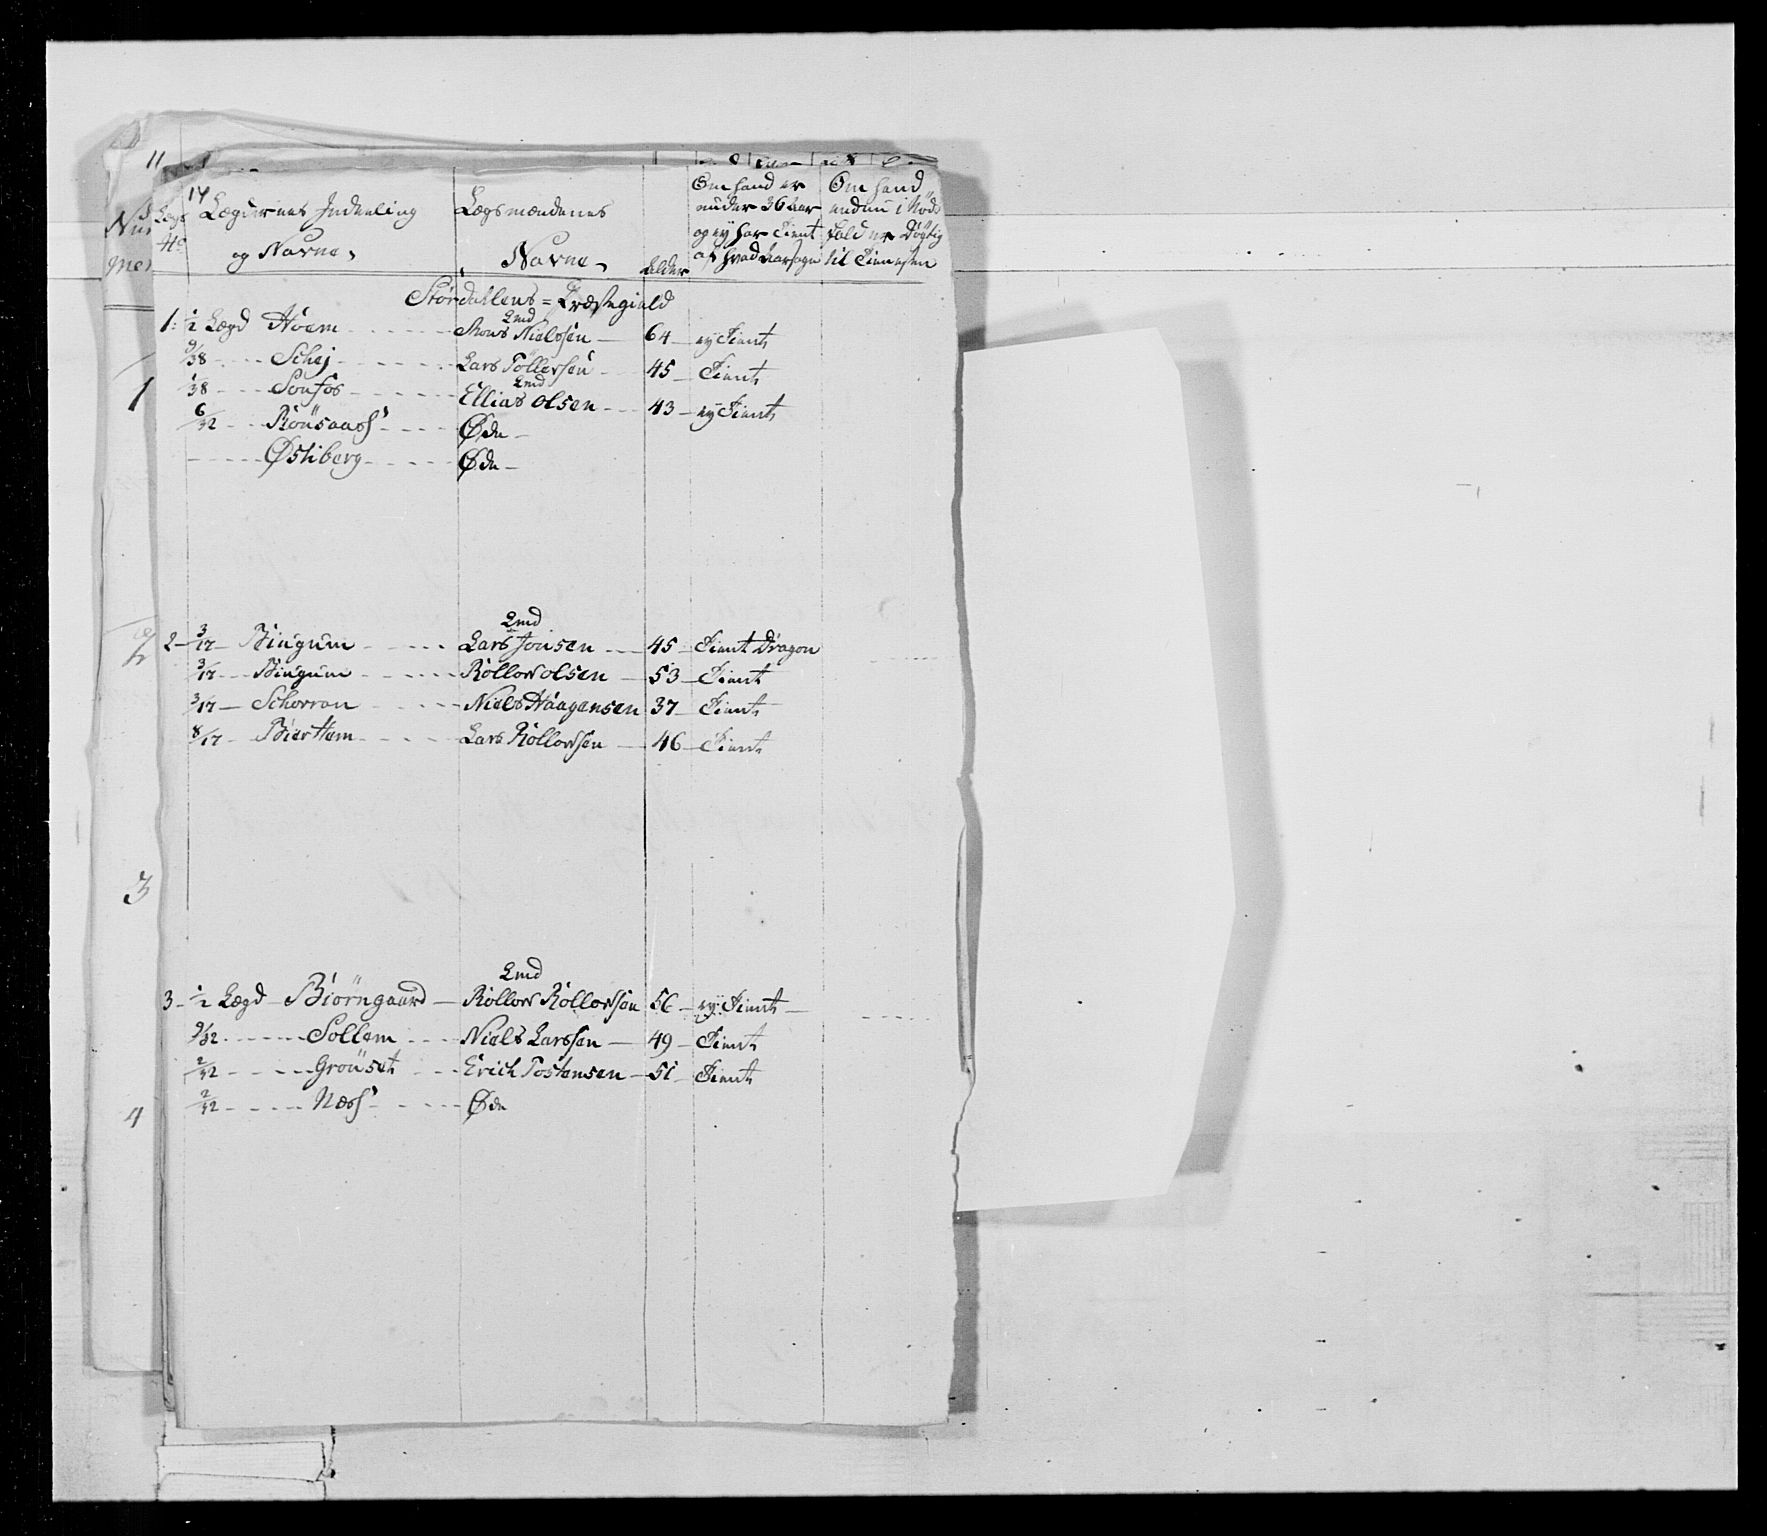 11
14
Lægdernes Indeeling
og Navne,
Lægsmændenes
Navne,
Alder
Om hand er
under 36 Aar
og ey har Tient
af hvad Aarsagn
Om hand
endnu i Nøds
fald er Døgtig
til Tienesten
Størdahlens = Præstegield
1: 1/2 Lægd Hoem Lmd Mons Nielssen 64 ey Tient
9/38 Schej Lars Tollersen 45 Tient
1/38 Sonfos Lmd Ellias Olsen 43 ey Tient
6/32 Rønsaass Øde
Østiberg Øde
2 3/17 Bingum Lmd Lars Jonsen 45 Tient Dragon
3/17 Bingum Rollov Olsen 53 Tient
3/17 Schorran Niels Haagensen 37 Tient
8/17 Bierttem Lars Rollovsen 46 Tient
3 1/2 Lægd Biørngaard Lmd Rollov Rollovsen 56 ey Tient
9/32 Sollem Niels Larssen 49 Tient
2/32 Grønset Erich Tostensen 51 Tient
2/32 Næss Øde
1
2
3
4